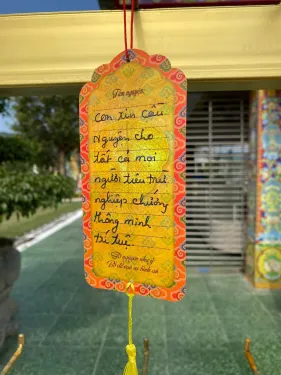 Tâm nguyện
con tin cầu
Nguyện cho
tất cả mọi
người tiêu trừ
nghiệp chướng
thông minh
trí tuệ
Sở nguyện như ý